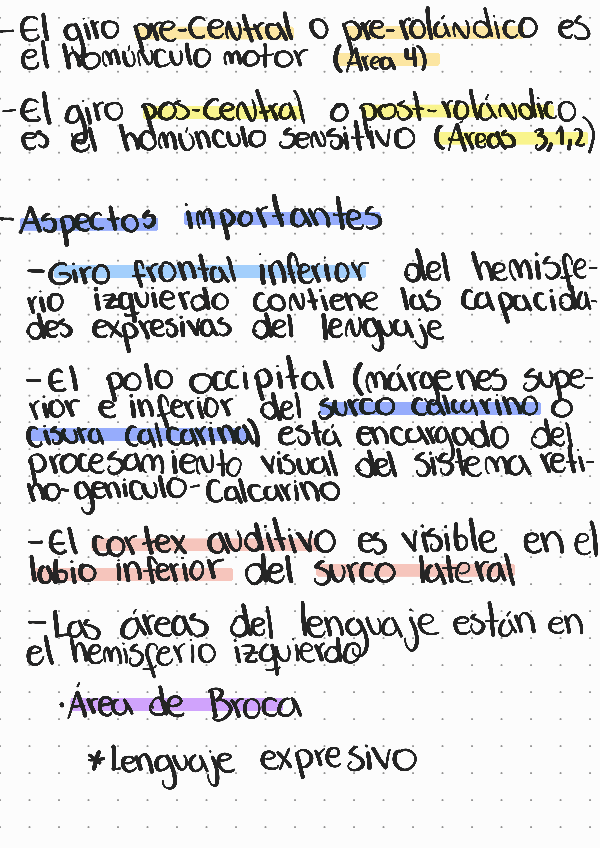 -El giro pre-central o pre-rolándico es
el homúnculo motor (Área 4)
-El giro pos-central o post-rolándico
es el homúnculo sensitivo (Áreas 3,1,2)
-Aspectos importantes
-Giro frontal inferior del hemisfe-
rio izquierdo contiene las capacida-
des expresivas del lenguaje
-El polo occipital (márgenes supe-
rior e inferior del surco calcarino o
cisura calcarina) está encargado del
procesamiento visual del sistema reti-
no-geniculo-calcarino
-El cortex auditivo es visible en el
labio inferior del surco lateral
-Las áreas del lenguaje están en
el hemisferio izquierdo
·Área de Broca
*Lenguaje expresivo